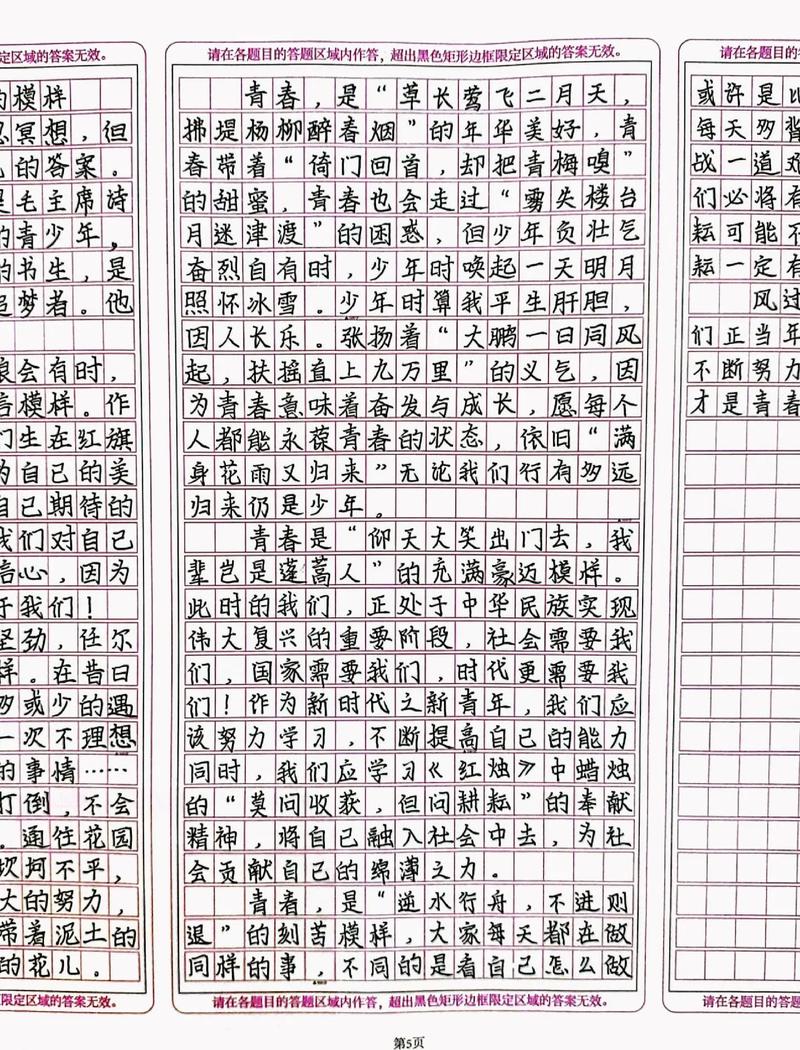 定区域的答案无效。
的模样
思冥想，但
的答案。
是毛主席诗
的青少年，
的书生，是
追梦者。他
浪会有时，
模样。作
们生在红旗
为自己的美
自己期待的
我们对自己
信心，因为
于我们！
坚劲，任尔
样。在昔日
多或少的遇
一次不理想
的事情……
打倒，不会
。通往花园
坎坷不平，
大的努力，
带着泥土的
的花儿。
限定区域的答案无效。
请在各题目的答题区域内作答，超出黑色矩形边框限定区域的答案无效。
青春，是“草长莺飞二月天，
拂堤杨柳醉春烟”的年华美好，青
春带着“倚门回首，却把青梅嗅”
的甜蜜，青春也会走过“雾失楼台
月迷津渡”的困惑，但少年负壮气
奋烈自有时，少年时唤起一天明月
照怀冰雪。少年时算我平生肝胆，
因人长乐。张扬着“大鹏一日同风
起，扶摇直上九万里”的义气，因
为青春意味着奋发与成长，愿每个
人都能永葆青春的状态，依旧“满
身花雨又归来”无论我们行有多远
归来仍是少年。
青春是“仰天大笑出门去，我
辈岂是蓬蒿人”的充满豪迈模样。
此时的我们，正处于中华民族实现
伟大复兴的重要阶段，社会需要我
们，国家需要我们，时代更需要我
们！作为新时代之新青年，我们应
该努力学习，不断提高自己的能力
同时，我们应学习《红烛》中蜡烛
的“莫问收获，但问耕耘”的奉献
精神，将自己融入社会中去，为社
会贡献自己的绵薄之力。
青春，是“逆水行舟，不进则
退”的刻苦模样，大家每天都在做
同样的事，不同的是看自己怎么做
请在各题目的答题区域内作答，超出黑色矩形边框限定区域的答案无效。
第5页
请在各题目的答题区域内作
或许是比
每天多背
战一道难
们必将有
耘可能不
耘一定有
风过
们正当年
不断努力
才是青春
请在各题目的答